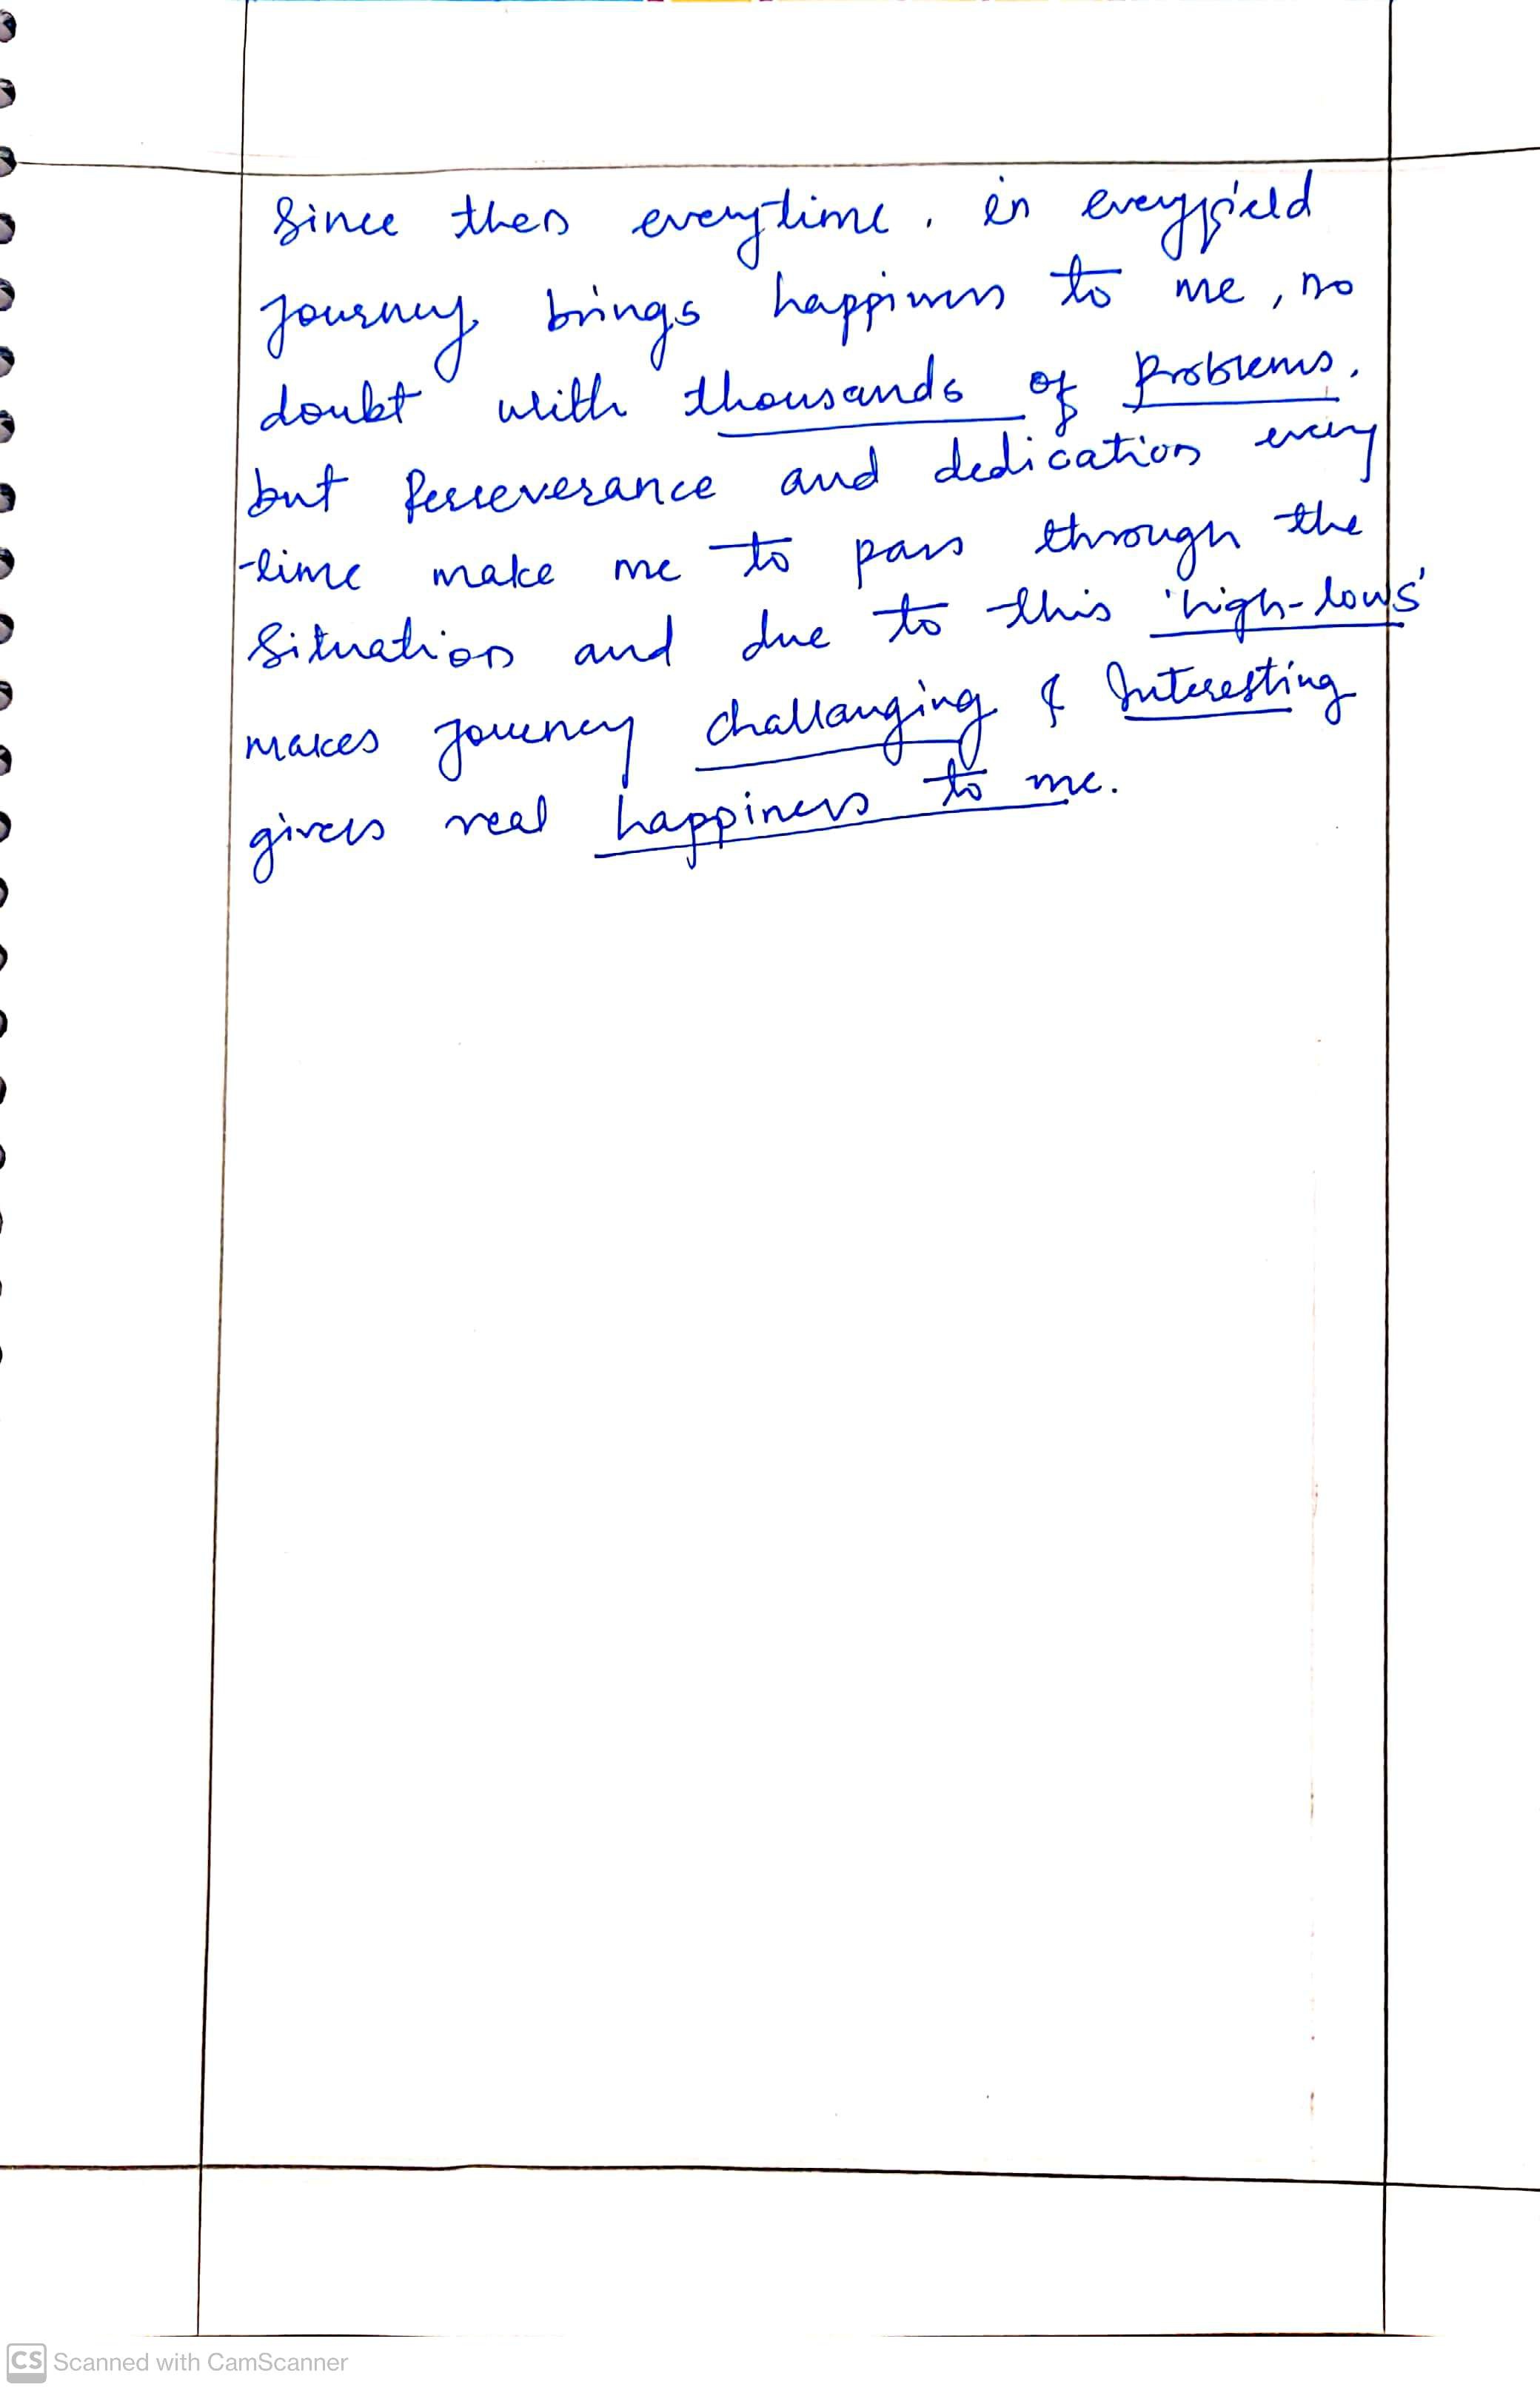 Since then everytime, in everyfield
Journey brings happiness to me, no
doubt with thousands of Problems,
but Perseverance and dedication every
time make me to pass through the
Situation and due to this 'high-lows'
makes journey challanging & Interesting
gives real happiness to me.
CS Scanned with CamScanner